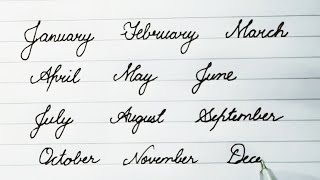 January February March
April May June
July August September
October November Dece